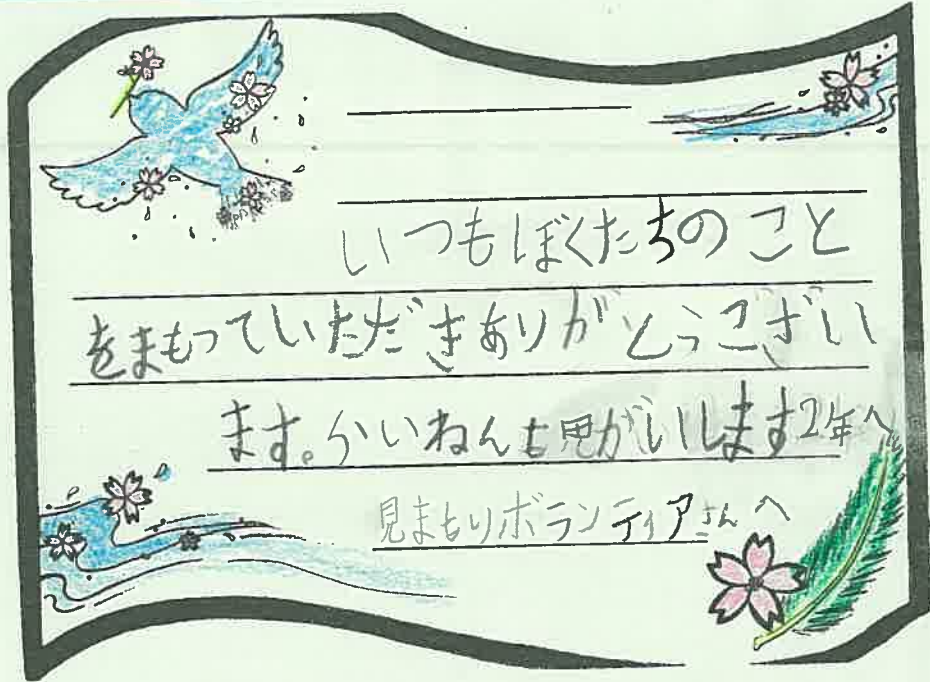 いつもぼくたちのこと
をまもっていただきありがとうござい
ます。らいねんも がいします2年へ
見まもりボランティアさんへ